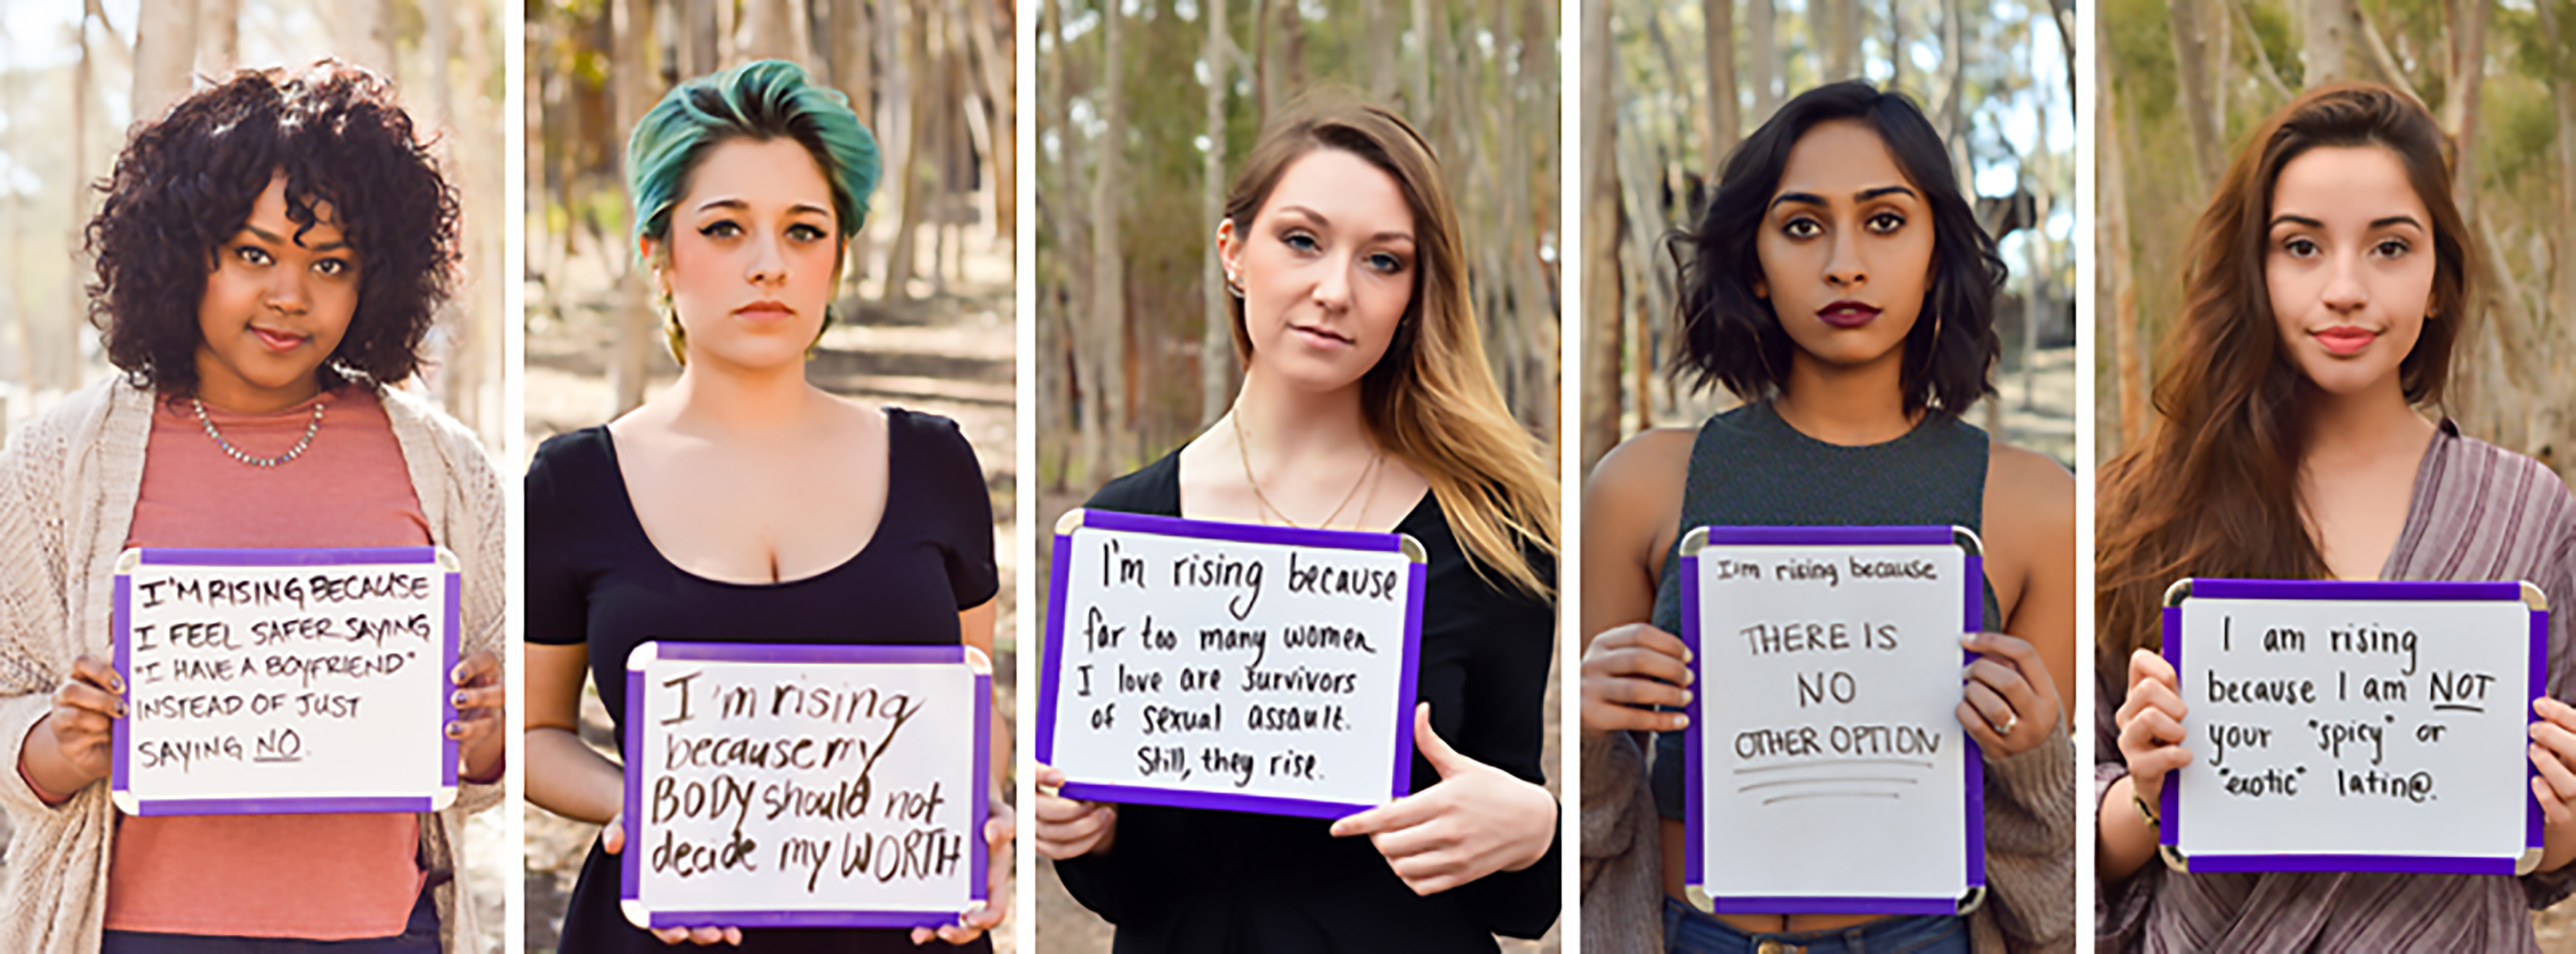 I'M RISING BECAUSE
I FEEL SAFER SAYING
"I HAVE A BOYFRIEND"
INSTEAD OF JUST
SAYING NO.
I'm rising
because my
BODY should not
decide my WORTH
I'm rising because
far too many women
I love are survivors
of sexual assault.
Still, they rise.
I'm rising because
THERE IS
NO
OTHER OPTION
I am rising
because I am NOT
your "spicy" or
"exotic" latin@.